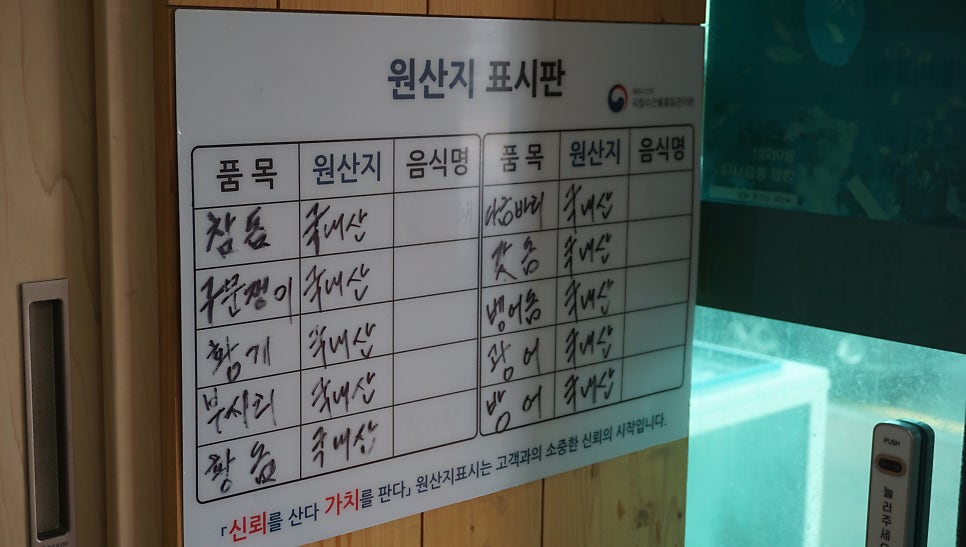 원산지 표시판
해양수산부
국립수산물품질관리원
품목 원산지 음식명 품목 원산지 음식명
참돔 국내산 다금바리 국내산
구문쟁이 국내산 갓돔 국내산
황게 국내산 뱅어돔 국내산
부시리 국내산 광어 국내산
황돔 국내산 방어 국내산
「신뢰를 산다 가치를 판다」 원산지표시는 고객과의 소중한 신뢰의 시작입니다.
PUSH
눌러주세요